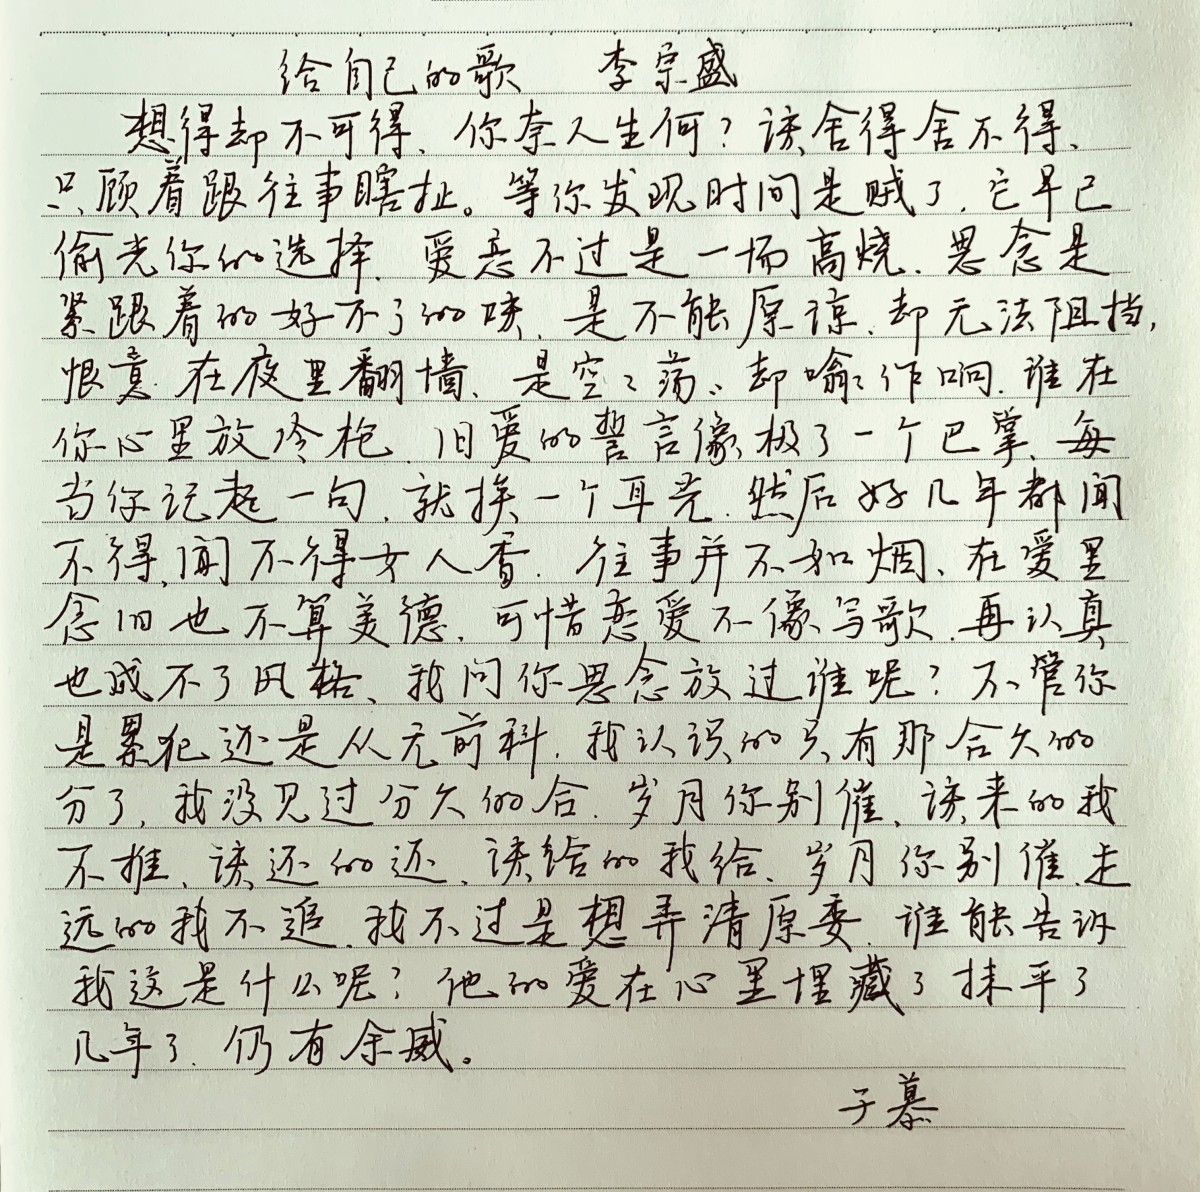 给自己的歌 李宗盛
想得却不可得、你奈人生何？该舍得舍不得、
只顾着跟往事瞎扯。等你发现时间是贼了、它早已
偷光你的选择、爱恋不过是一场高烧、思念是
紧跟着的好不了的咳、是不能原谅、却无法阻挡，
恨意、在夜里翻墙、是空々荡、却嗡々作响、谁在
你心里放冷枪、旧爱的誓言像极了一个巴掌、每
当你记起一句、就挨一个耳光、然后好几年都闻
不得、闻不得女人香、往事并不如烟、在爱里
念旧也不算美德、可惜恋爱不像写歌、再认真
也成不了风格、我问你思念放过谁呢？不管你
是累犯还是从无前科、我认识的只有那合久的
分了，我没见过分久的合、岁月你别催、该来的我
不推、该还的还、该给的我给、岁月你别催、走
远的我不追、我不过是想弄清原委、谁能告诉
我这是什么呢？他的爱在心里埋藏了抹平了
几年了、仍有余威。
子慕